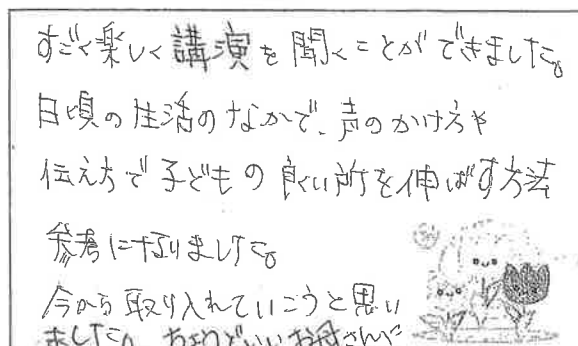 すごく楽しく講演を聞くことができました。
日頃の生活のなかで、声のかけ方や
伝え方で子どもの良い所を伸ばす方法
参考になりました。
今から取り入れていこうと思い
ました。 お母さんで